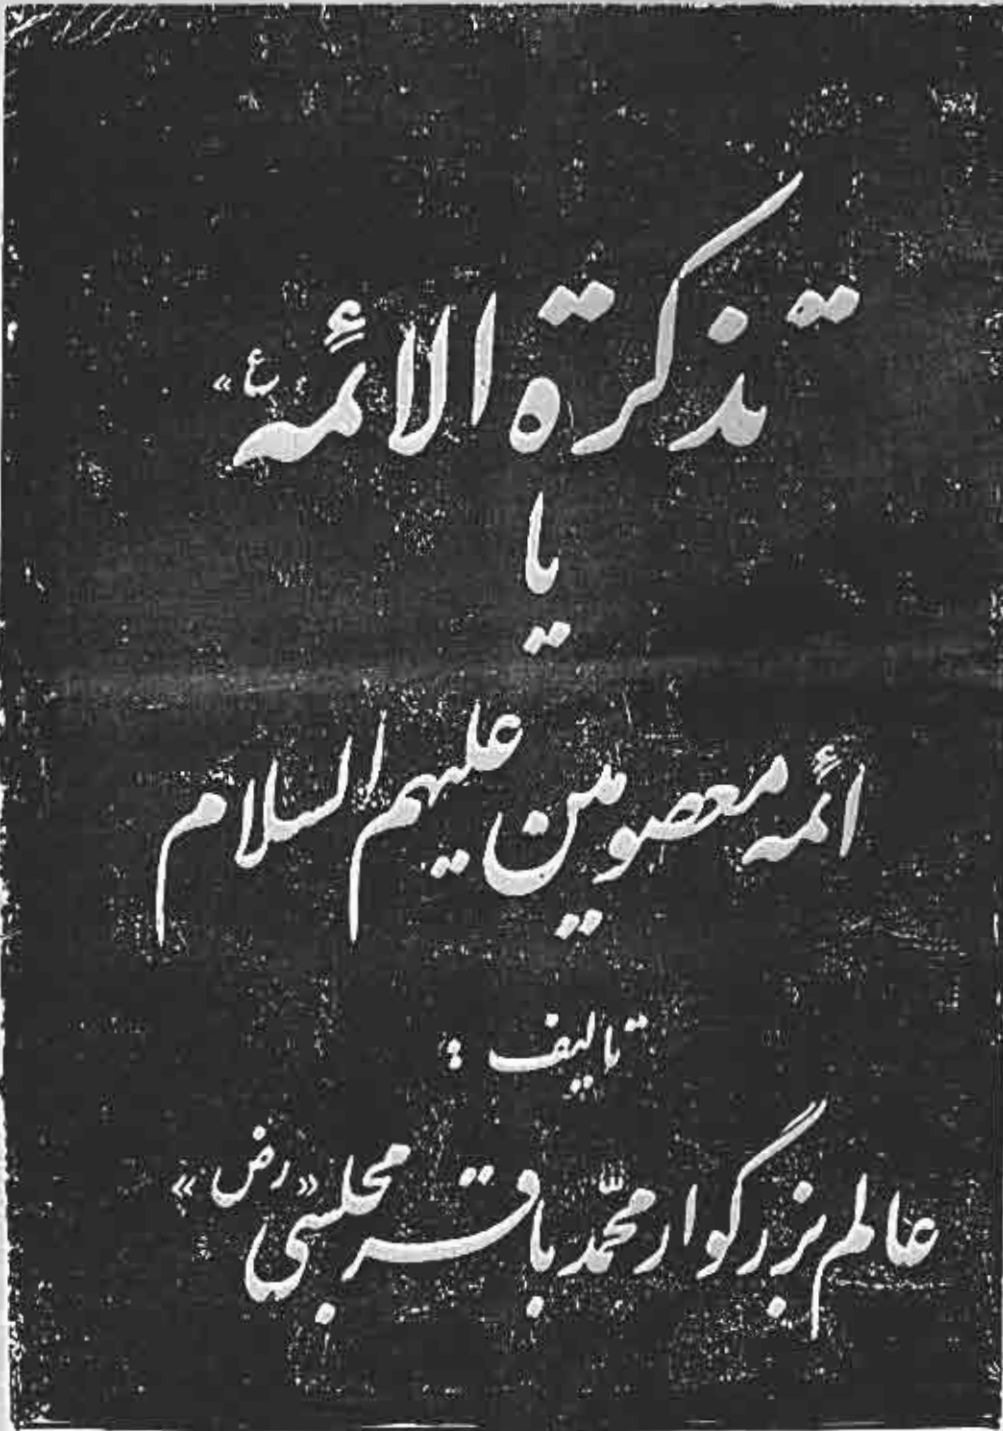 تذکرة الائمه «ع»
یا
ائمه معصومین علیهم السلام
تالیف :
عالم بزرگوار محمّد باقر مجلسی «رض»